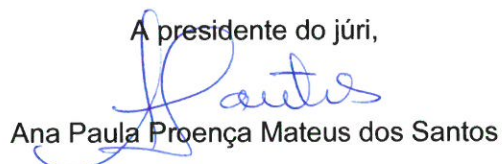 A presidente do júri,
Santos
Ana Paula Proença Mateus dos Santos